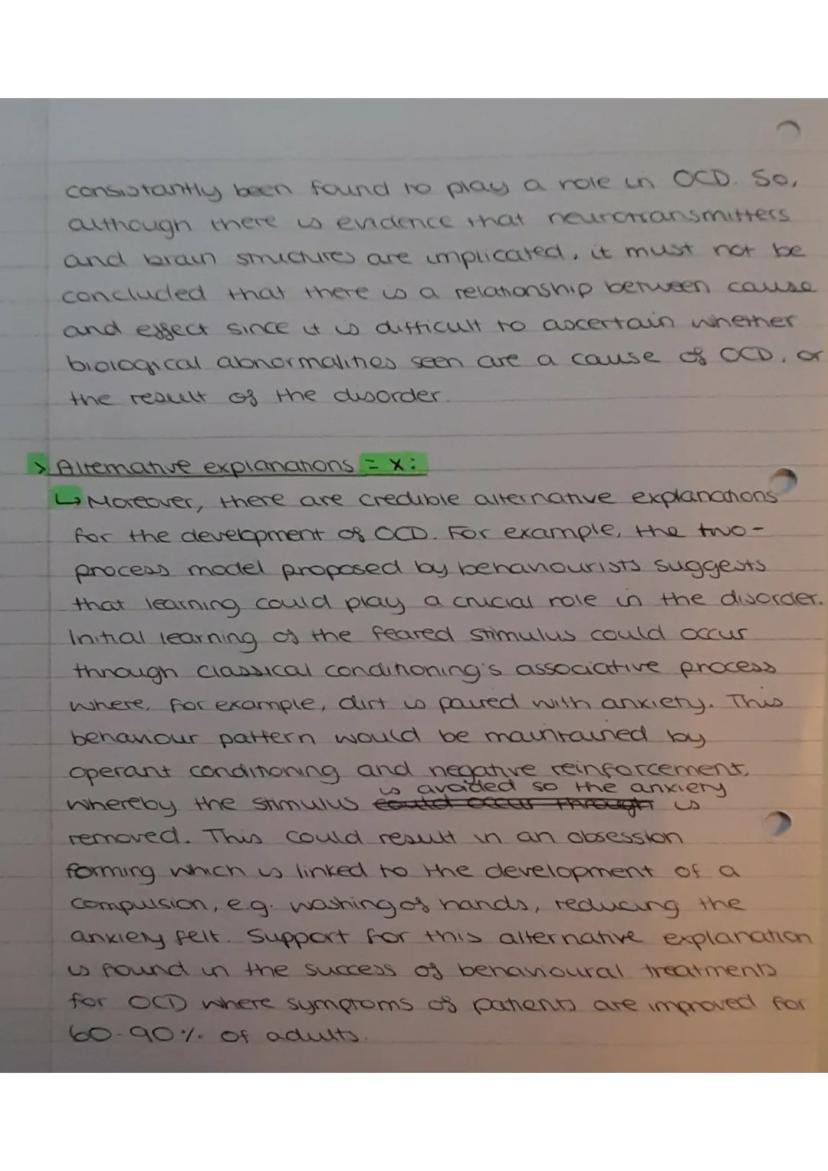 consistantly been found to play a role in OCD. So,
although there is evidence that neurotransmitters
and brain structures are implicated, it must not be
concluded that there is a relationship between cause
and effect since it is difficult to ascertain whether
biological abnormalities seen are a cause of OCD, or
the result of the disorder.
> Alternative explanations = x:
↳ Moreover, there are credible alternative explanations
for the development of OCD. For example, the two-
process model proposed by behaviourists suggests
that learning could play a crucial role in the disorder.
Initial learning of the feared stimulus could occur
through classical conditioning's associative process
where, for example, dirt is paired with anxiety. This
behaviour pattern would be maintained by
operant conditioning and negative reinforcement,
is avoided so the anxiety
whereby the stimulus could occur through is
removed. This could result in an obsession
forming which is linked to the development of a
compulsion, e.g. washing of hands, reducing the
anxiety felt. Support for this alternative explanation
is found in the success of behavioural treatments
for OCD where symptoms of patients are improved for
60-90% of adults.